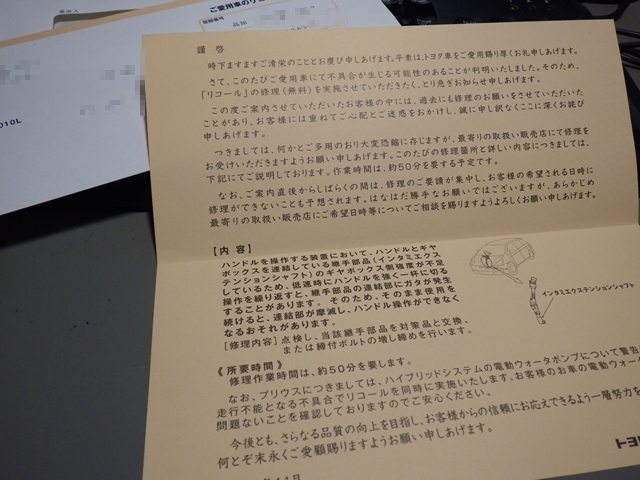 ご愛用車のリコ
高知
010L
謹 啓
時下ますますご清栄のこととお慶び申しあげます。平素は、トヨタ車をご愛用賜り厚くお礼申しあげます。
さて、このたびご愛用車にて不具合が生じる可能性のあることが判明いたしました。そのため、
「リコール」の修理（無料）を実施させていただきたく、とり急ぎお知らせ申しあげます。
この度ご案内させていただいたお客様の中には、過去にも修理のお願いをさせていただいた
ことがあり、お客様には重ねてご心配とご迷惑をおかけし、誠に申し訳なくここに深くお詫び
申しあげます。
つきましては、何かとご多用のおり大変恐縮に存じますが、最寄りの取扱い販売店にて修理を
お受けいただきますようお願い申しあげます。このたびの修理箇所と詳しい内容につきましては、
下記にてご説明しております。作業時間は、約50分を要する予定です。
なお、ご案内直後からしばらくの間は、修理のご要請が集中し、お客様の希望される日時に
修理ができないことも予想されます。はなはだ勝手なお願いではございますが、あらかじめ
最寄りの取扱い販売店にご希望日時等についてご相談を賜りますようよろしくお願い申しあげます。
【内 容】
ハンドルを操作する装置において、ハンドルとギヤ
ボックスを連結している継手部品（インタミエクス
テンションシャフト）のギヤボックス側強度が不足
しているため、低速時にハンドルを強く一杯に切る
操作を繰り返すと、継手部品の連結部にガタが発生
することがあります。そのため、そのまま使用を
続けると、連結部が摩滅し、ハンドル操作ができなく
なるおそれがあります。
インタミエクステンションシャフト
［修理内容］点検し、当該継手部品を対策品と交換、
または締付ボルトの増し締めを行います。
《所要時間》
修理作業時間は、約50分を要します。
なお、プリウスにつきましては、ハイブリッドシステムの電動ウォータポンプについて警告
走行不能となる不具合でリコールを同時に実施いたします。お客様のお車の電動ウォー
問題ないことを確認しておりますのでご安心ください。
今後とも、さらなる品質の向上を目指し、お客様からの信頼にお応えできるよう一層努力を
何とぞ末永くご愛顧賜りますようお願い申しあげます。
トヨ